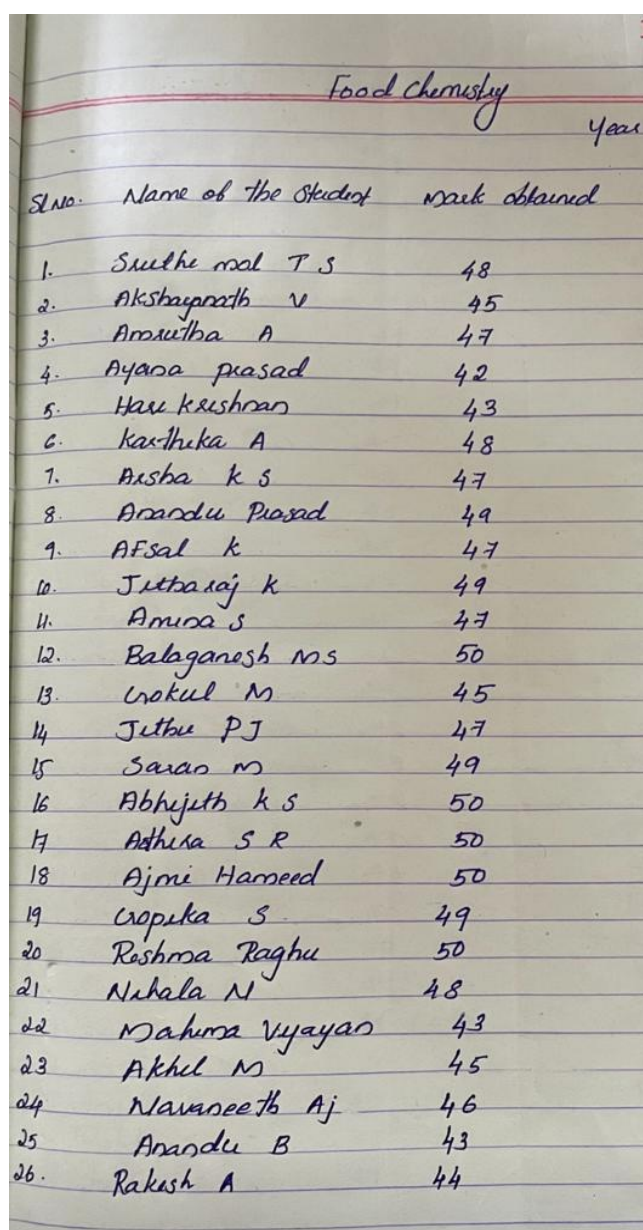 Food Chemistry
Year
Sl No. Name of the Student Mark obtained
1. Sruthi mol T S 48
2. Akshaynath V 45
3. Amrutha A 47
4. Ayana prasad 42
5. Hari krishnan 43
6. Karthika A 48
7. Arsha k S 47
8. Anandu Prasad 49
9. AFsal k 47
10. Jithuraj k 49
11. Amina S 47
12. Balaganesh MS 50
13. Gokul M 45
14 Jithu PJ 47
15 Saran M 49
16 Abhijith k S 50
17 Athira S R 50
18 Ajmi Hameed 50
19 Gopika S. 49
20 Reshma Raghu 50
21 Nihala N 48
22 Mahima Vijayan 43
23 Akhil M 45
24 Navaneeth Aj 46
25 Anandu B 43
26. Rakesh A 44